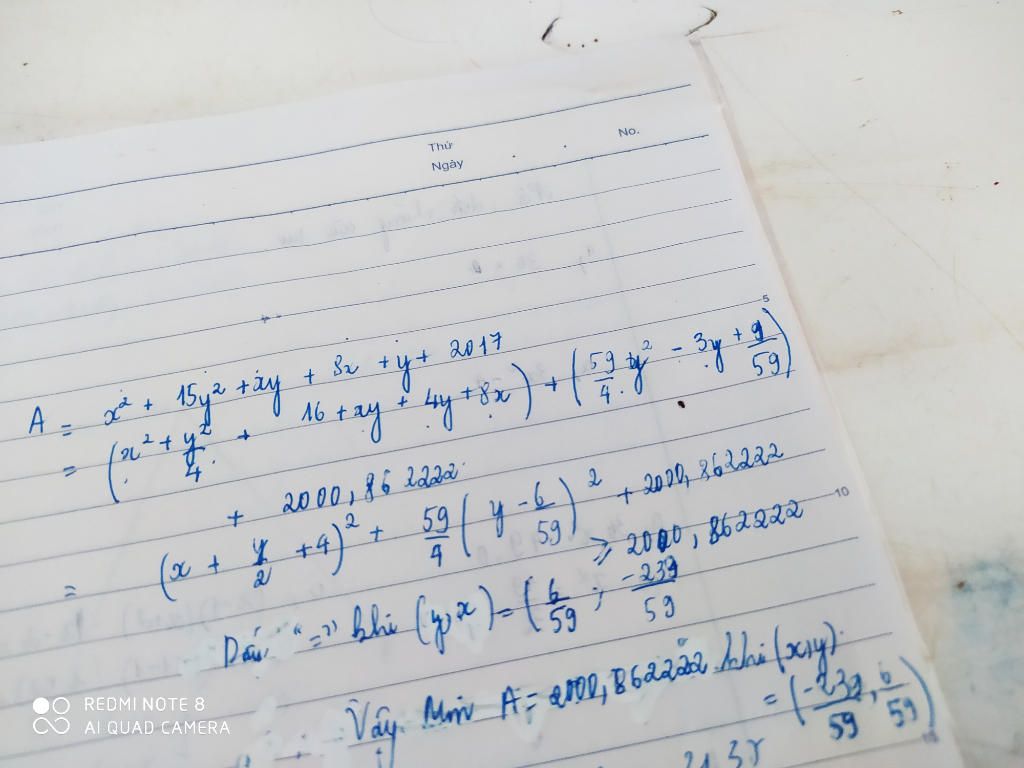 Thứ
Ngày
No.
5
A = x² + 15y² + xy + 8x + y + 2017
= (x² + y²/4 + 16 + xy + 4y + 8x) + (59/4 y² - 3y + 9/59)
+ 2000,862222
= (x + y/2 + 4)² + 59/4 (y - 6/59)² + 2000,862222
10
≥ 2000,862222
Dấu "=" khi (y;x) = (6/59 ; -239/59
Vậy Min A = 2000,862222 khi (x,y)
= (-239/59, 6/59)
REDMI NOTE 8
AI QUAD CAMERA